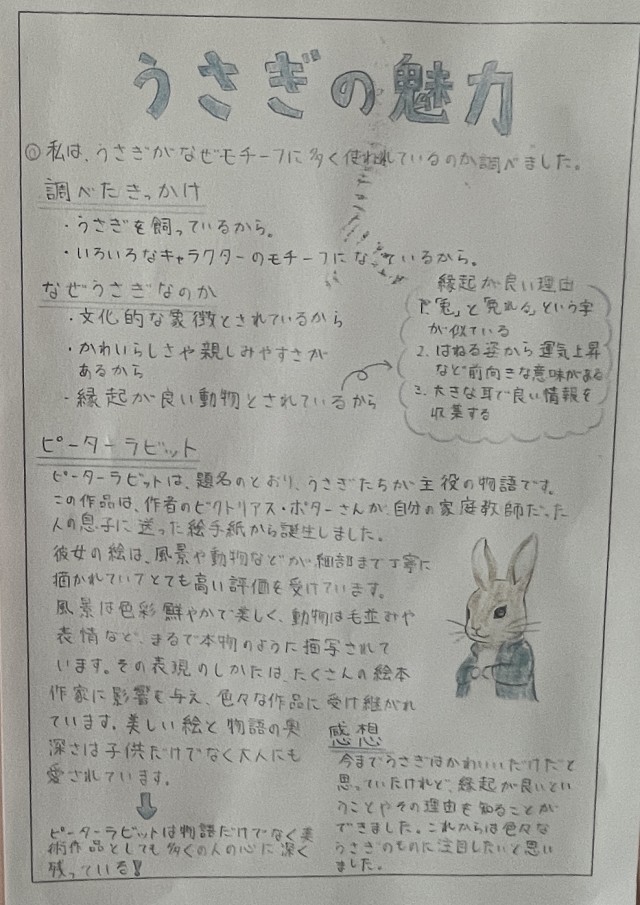 うさぎの魅力
◎私は、うさぎがなぜモチーフに多く使われているのか調べました。
調べたきっかけ
・うさぎを飼っているから。
・いろいろなキャラクターのモチーフになっているから。
なぜうさぎなのか
・文化的な象徴とされているから
・かわいらしさや親しみやすさが
あるから
・縁起が良い動物とされているから
縁起が良い理由
1.「兎」と「免れる」という字
が似ている
2. はねる姿から運気上昇
など前向きな意味がある
3. 大きな耳で良い情報を
収集する
ピーターラビット
ピーターラビットは、題名のとおり、うさぎたちが主役の物語です。
この作品は、作者のビクトリアス・ポターさんが、自分の家庭教師だった
人の息子に送った絵手紙から誕生しました。
彼女の絵は、風景や動物などが細部まで丁寧に
描かれていてとても高い評価を受けています。
風景は色彩鮮やかで美しく、動物は毛並みや
表情など、まるで本物のように描写されて
います。その表現のしかたは、たくさんの絵本
作家に影響を与え、色々な作品に受け継がれ
ています。美しい絵と物語の奥
深さは子供だけでなく大人にも
愛されています。
ピーターラビットは物語だけでなく美
術作品としても多くの人の心に深く
残っている!
感想
今までうさぎはかわいいだけだと
思っていたけれど、縁起が良いとい
うことやその理由を知ることが
できました。これからは色々な
うさぎのものに注目したいと思い
ました。